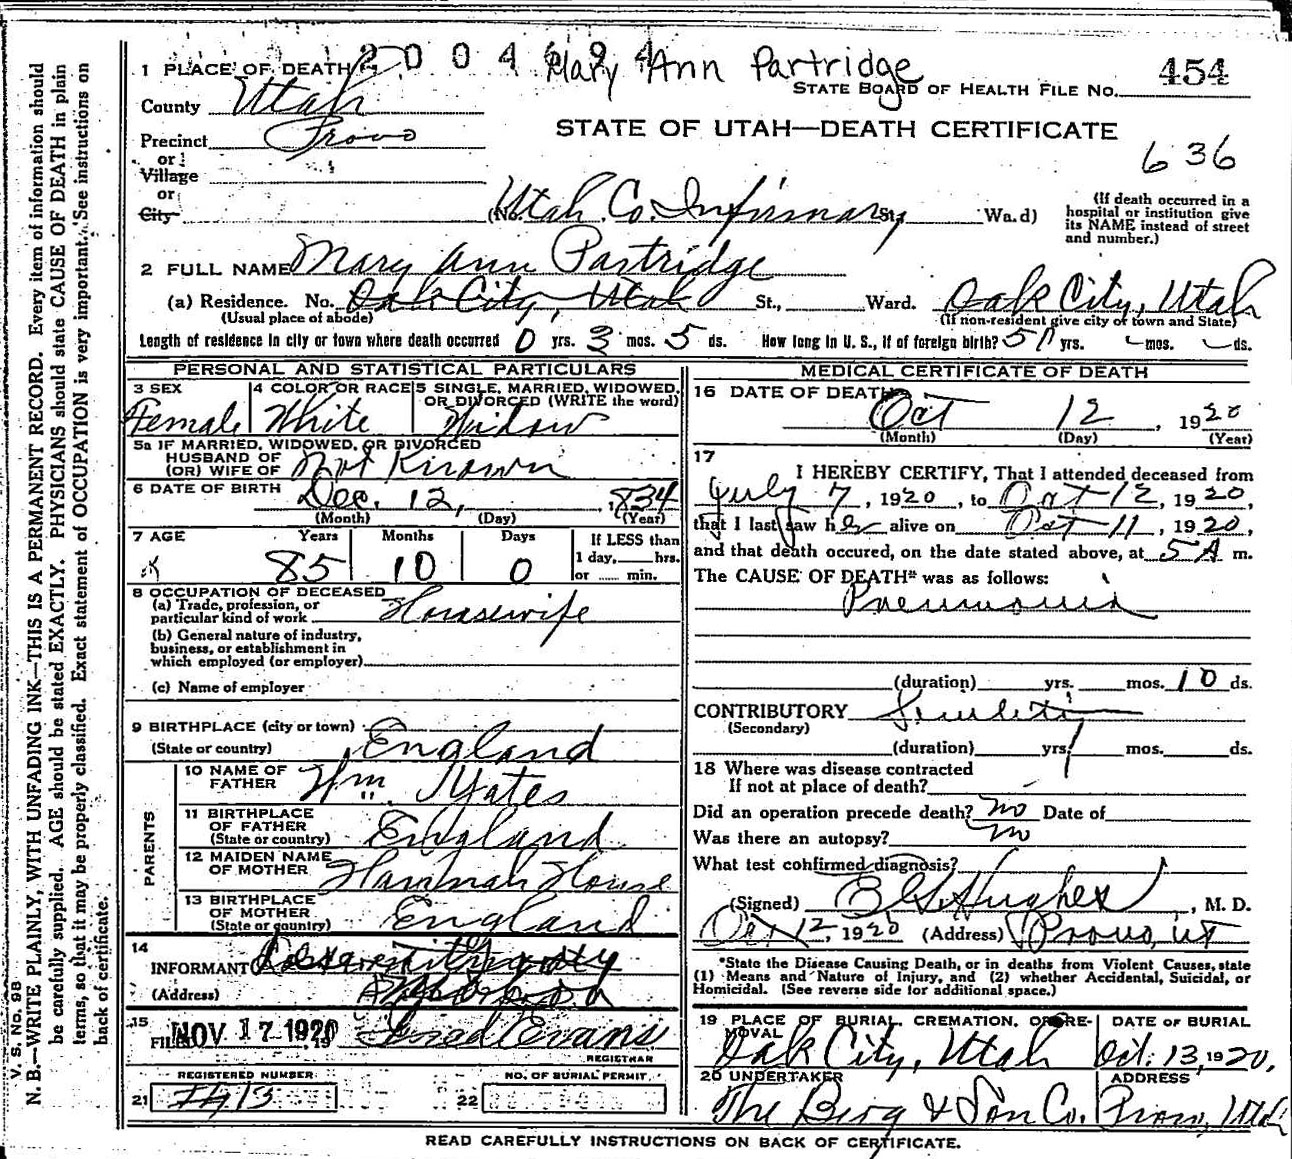 2004694 Mary Ann Partridge
1 PLACE OF DEATH
STATE BOARD OF HEALTH FILE NO. 454
County Utah
STATE OF UTAH—DEATH CERTIFICATE
Precinct Provo
636
or
Village
or
City (No. Utah Co. Infirmary St., Wa.d)
(If death occurred in a hospital or institution give its NAME instead of street and number.)
2 FULL NAME Mary Ann Partridge
(a) Residence. No. Oak City, Utah St., Ward. Oak City, Utah
(Usual place of abode) (If non-resident give city or town and State)
Length of residence in city or town where death occurred 0 yrs. 3 mos. 5 ds. How long in U. S., if of foreign birth? 51 yrs. mos. ds.
PERSONAL AND STATISTICAL PARTICULARS
3 SEX 4 COLOR OR RACE 5 SINGLE, MARRIED, WIDOWED, OR DIVORCED (WRITE the word)
Female White Widow
5a IF MARRIED, WIDOWED, OR DIVORCED
HUSBAND OF
(OR) WIFE OF Not Known
6 DATE OF BIRTH Dec. 12, 1834
(Month) (Day) (Year)
7 AGE Years Months Days If LESS than
1 day, hrs.
85 10 0 or min.
8 OCCUPATION OF DECEASED
(a) Trade, profession, or
particular kind of work Housewife
(b) General nature of industry,
business, or establishment in
which employed (or employer)
(c) Name of employer
9 BIRTHPLACE (city or town)
(State or country) England
PARENTS
10 NAME OF
FATHER Wm. Yates
11 BIRTHPLACE
OF FATHER
(State or country) England
12 MAIDEN NAME
OF MOTHER Hannah House
13 BIRTHPLACE
OF MOTHER
(State or country) England
14
INFORMANT
(Address)
15
FILED NOV 17 1920 Fred Evans
REGISTRAR
REGISTERED NUMBER NO. OF BURIAL PERMIT
21 22
MEDICAL CERTIFICATE OF DEATH
16 DATE OF DEATH
Oct 12, 1920
(Month) (Day) (Year)
17
I HEREBY CERTIFY, That I attended deceased from
July 7, 1920, to Oct 12, 1920,
that I last saw her alive on Oct 11, 1920,
and that death occured, on the date stated above, at 5 A m.
The CAUSE OF DEATH* was as follows:
Pneumonia
(duration) yrs. mos. 10 ds.
CONTRIBUTORY
(Secondary)
(duration) yrs. mos. ds.
18 Where was disease contracted
If not at place of death?
Did an operation precede death? no Date of
Was there an autopsy? no
What test confirmed diagnosis?
(Signed) Hughes, M. D.
Oct 12, 1920 (Address) Provo, Ut
*State the Disease Causing Death, or in deaths from Violent Causes, state
(1) Means and Nature of Injury, and (2) whether Accidental, Suicidal, or
Homicidal. (See reverse side for additional space.)
19 PLACE OF BURIAL, CREMATION, OR RE- DATE OF BURIAL
MOVAL
Oak City, Utah Oct. 13, 1920.
20 UNDERTAKER ADDRESS
The Berg & Son Co. Provo, Utah
READ CAREFULLY INSTRUCTIONS ON BACK OF CERTIFICATE.
V. S. No. 98
N. B.—WRITE PLAINLY, WITH UNFADING INK—THIS IS A PERMANENT RECORD. Every item of information should
be carefully supplied. AGE should be stated EXACTLY. PHYSICIANS should state CAUSE OF DEATH in plain
terms, so that it may be properly classified. Exact statement of OCCUPATION is very important. See instructions on
back of certificate.